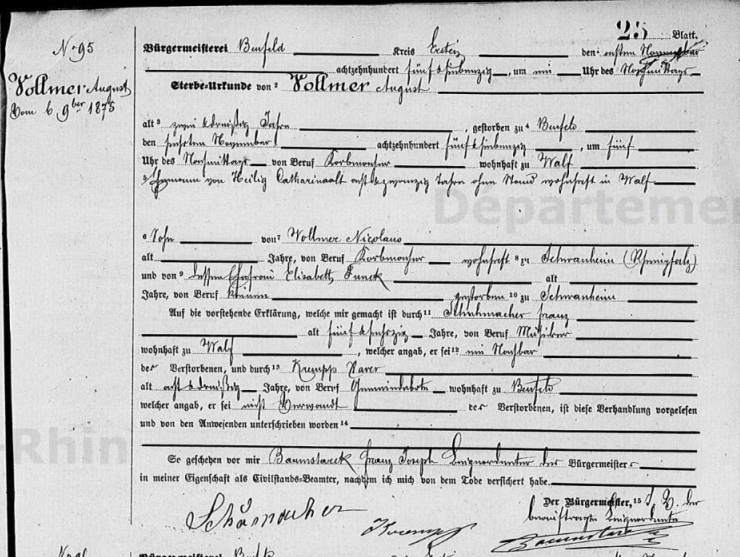 25 Blatt.
No 95
Bürgermeisterei Benfeld Kreis Erstein den
achtzehnhundert fünf & siebenzig, um ein Uhr des Nachmittags
Vollmer August
Vom 6 9ber 1875
Sterbe-Urkunde von 2 Vollmer August
alt 3 zwei & dreißig Jahre, gestorben zu 4 Benfeld
den sechsten November achtzehnhundert fünf & siebenzig, um fünf
Uhr des Nachmittags von Beruf Korbmacher wohnhaft zu Walf
5 Ehemann von Heilig Catharina alt acht & zwanzig Jahre ohne Stand wohnhaft in Walf
Departeme
6 Sohn von 7 Vollmer Nicolaus
alt Jahre, von Beruf Korbmacher wohnhaft 8 zu Schwanheim (Rheinpfalz)
und von 9 dessen Ehefrau Elisabeth Funck alt
Jahre, von Beruf keinen gestorben 10 zu Schwanheim
Auf die vorstehende Erklärung, welche mir gemacht ist durch 11 Schuhmacher Franz
alt fünf & sechzig Jahre, von Beruf Musiker
wohnhaft zu Walf, welcher angab, er sei 12 ein Nachbar
des Verstorbenen, und durch 13 Krempp Xaver
alt acht & dreißig Jahre, von Beruf Gemeindebote wohnhaft zu Benfeld
welcher angab, er sei nicht Verwandt des Verstorbenen, ist diese Verhandlung vorgelesen
und von den Anwesenden unterschrieben worden 14
-Rhin
So geschehen vor mir Baumstarck Franz Joseph Beigeordneter der Bürgermeister
in meiner Eigenschaft als Civilstands-Beamter, nachdem ich mich von dem Tode versichert habe.
Der Bürgermeister, 15
beauftragte Beigeordnete
Schumacher Krempp Baumstarck
Bürgermeisterei